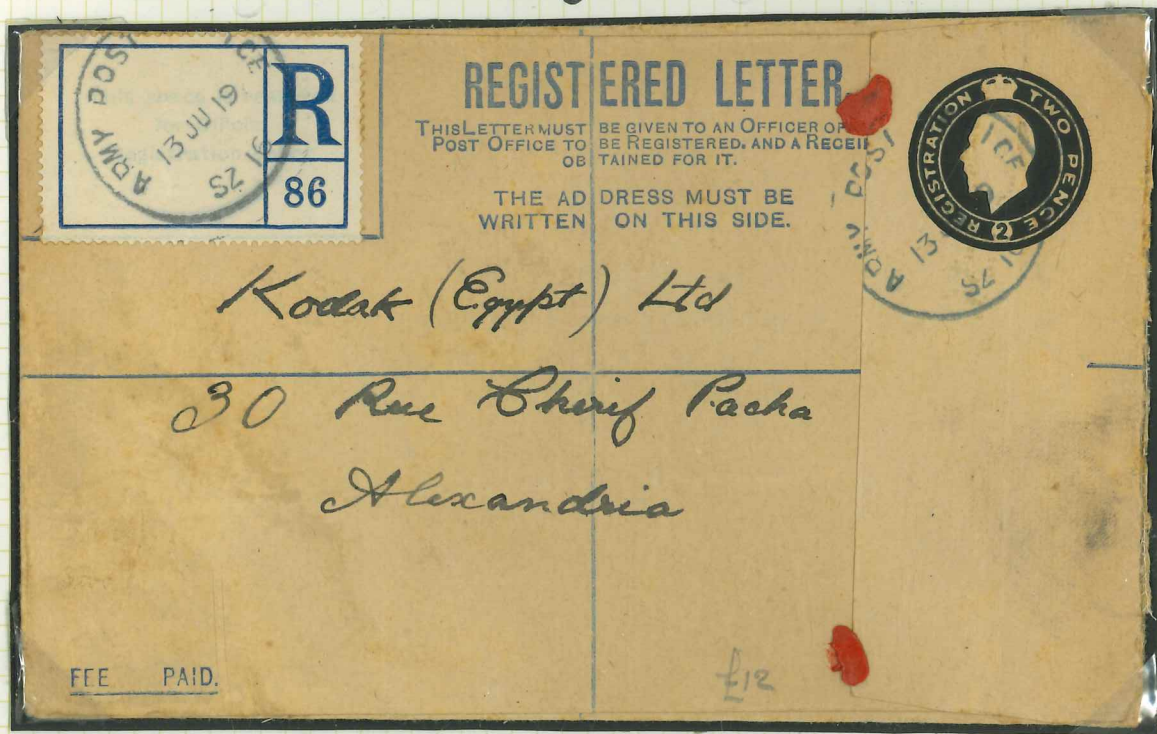 ARMY POST ICE
13 JU 19
SZ 16
R
86
REGISTERED LETTER.
THIS LETTER MUST BE GIVEN TO AN OFFICER OF
POST OFFICE TO BE REGISTERED, AND A RECEI
OBTAINED FOR IT.
THE ADDRESS MUST BE
WRITTEN ON THIS SIDE.
REGISTRATION TWO PENCE
2
ARMY POST ICE
13
SZ
Kodak (Egypt) Ltd
30 Rue Cherif Pacha
Alexandria
FEE PAID.
£12